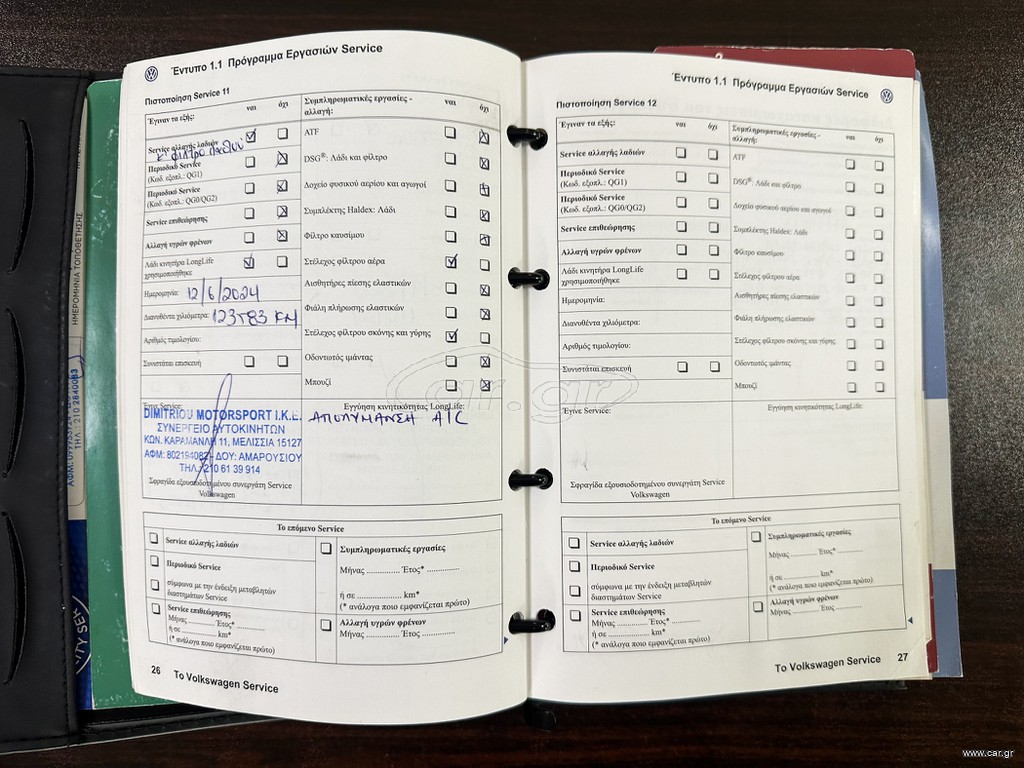 Έντυπο 1.1 Πρόγραμμα Εργασιών Service
Πιστοποίηση Service 11
Έγιναν τα εξής: ναι όχι
Service αλλαγής λαδιών
κ' φίλτρο
Περιοδικό Service
(Κωδ. εξοπλ.: QG1)
Περιοδικό Service
(Κωδ. εξοπλ.: QG0/QG2)
Service επιθεώρησης
Αλλαγή υγρών φρένων
Λάδι κινητήρα LongLife
χρησιμοποιήθηκε
Ημερομηνία: 12/6/2024
Διανυθέντα χιλιόμετρα: 123583 KM
Αριθμός τιμολογίου:
Συνιστάται επισκευή
Έγινε Service:
DIMITRIOU MOTORSPORT Ι.Κ.Ε.
ΣΥΝΕΡΓΕΙΟ ΑΥΤΟΚΙΝΗΤΩΝ
ΚΩΝ. ΚΑΡΑΜΑΝΛΗ 11, ΜΕΛΙΣΣΙΑ 15127
ΑΦΜ: 802194082 - ΔΟΥ: ΑΜΑΡΟΥΣΙΟΥ
ΤΗΛ.: 210 61 39 914
Σφραγίδα εξουσιοδοτημένου συνεργάτη Service
Volkswagen
Συμπληρωματικές εργασίες - ναι όχι
αλλαγή:
ATF
DSG®: Λάδι και φίλτρο
Δοχείο φυσικού αερίου και αγωγοί
Συμπλέκτης Haldex: Λάδι
Φίλτρο καυσίμου
Στέλεχος φίλτρου αέρα
Αισθητήρες πίεσης ελαστικών
Φιάλη πλήρωσης ελαστικών
Στέλεχος φίλτρου σκόνης και γύρης
Οδοντωτός ιμάντας
Μπουζί
Εγγύηση κινητικότητας LongLife:
ΑΠΟΛΥΜΑΝΣΗ A/C
Το επόμενο Service
Service αλλαγής λαδιών
Περιοδικό Service
σύμφωνα με την ένδειξη μεταβλητών
διαστημάτων Service
Service επιθεώρησης
Μήνας .......... Έτος* ..............
ή σε .................. km*
(* ανάλογα ποιο εμφανίζεται πρώτο)
Συμπληρωματικές εργασίες
Μήνας .............. Έτος* ..............
ή σε .................. km*
(* ανάλογα ποιο εμφανίζεται πρώτο)
Αλλαγή υγρών φρένων
Μήνας .............. Έτος ..............
26 Το Volkswagen Service
Έντυπο 1.1 Πρόγραμμα Εργασιών Service
Πιστοποίηση Service 12
Έγιναν τα εξής: ναι όχι
Service αλλαγής λαδιών
Περιοδικό Service
(Κωδ. εξοπλ.: QG1)
Περιοδικό Service
(Κωδ. εξοπλ.: QG0/QG2)
Service επιθεώρησης
Αλλαγή υγρών φρένων
Λάδι κινητήρα LongLife
χρησιμοποιήθηκε
Ημερομηνία:
Διανυθέντα χιλιόμετρα:
Αριθμός τιμολογίου:
Συνιστάται επισκευή
Έγινε Service:
Σφραγίδα εξουσιοδοτημένου συνεργάτη Service
Volkswagen
Συμπληρωματικές εργασίες - ναι όχι
αλλαγή:
ATF
DSG®: Λάδι και φίλτρο
Δοχείο φυσικού αερίου και αγωγοί
Συμπλέκτης Haldex: Λάδι
Φίλτρο καυσίμου
Στέλεχος φίλτρου αέρα
Αισθητήρες πίεσης ελαστικών
Φιάλη πλήρωσης ελαστικών
Στέλεχος φίλτρου σκόνης και γύρης
Οδοντωτός ιμάντας
Μπουζί
Εγγύηση κινητικότητας LongLife:
Το επόμενο Service
Service αλλαγής λαδιών
Περιοδικό Service
σύμφωνα με την ένδειξη μεταβλητών
διαστημάτων Service
Service επιθεώρησης
Μήνας .......... Έτος* ..............
ή σε .................. km*
(* ανάλογα ποιο εμφανίζεται πρώτο)
Συμπληρωματικές εργασίες
Μήνας .......... Έτος* ..............
ή σε .................. km*
(* ανάλογα ποιο εμφανίζεται πρώτο)
Αλλαγή υγρών φρένων
Μήνας .......... Έτος ..............
Το Volkswagen Service 27
ΗΜΕΡΟΜΗΝΙΑ ΤΟΠΟΘΕΤΗΣΗΣ
ΤΗΛ.: 210 2840083
car.gr
www.car.gr